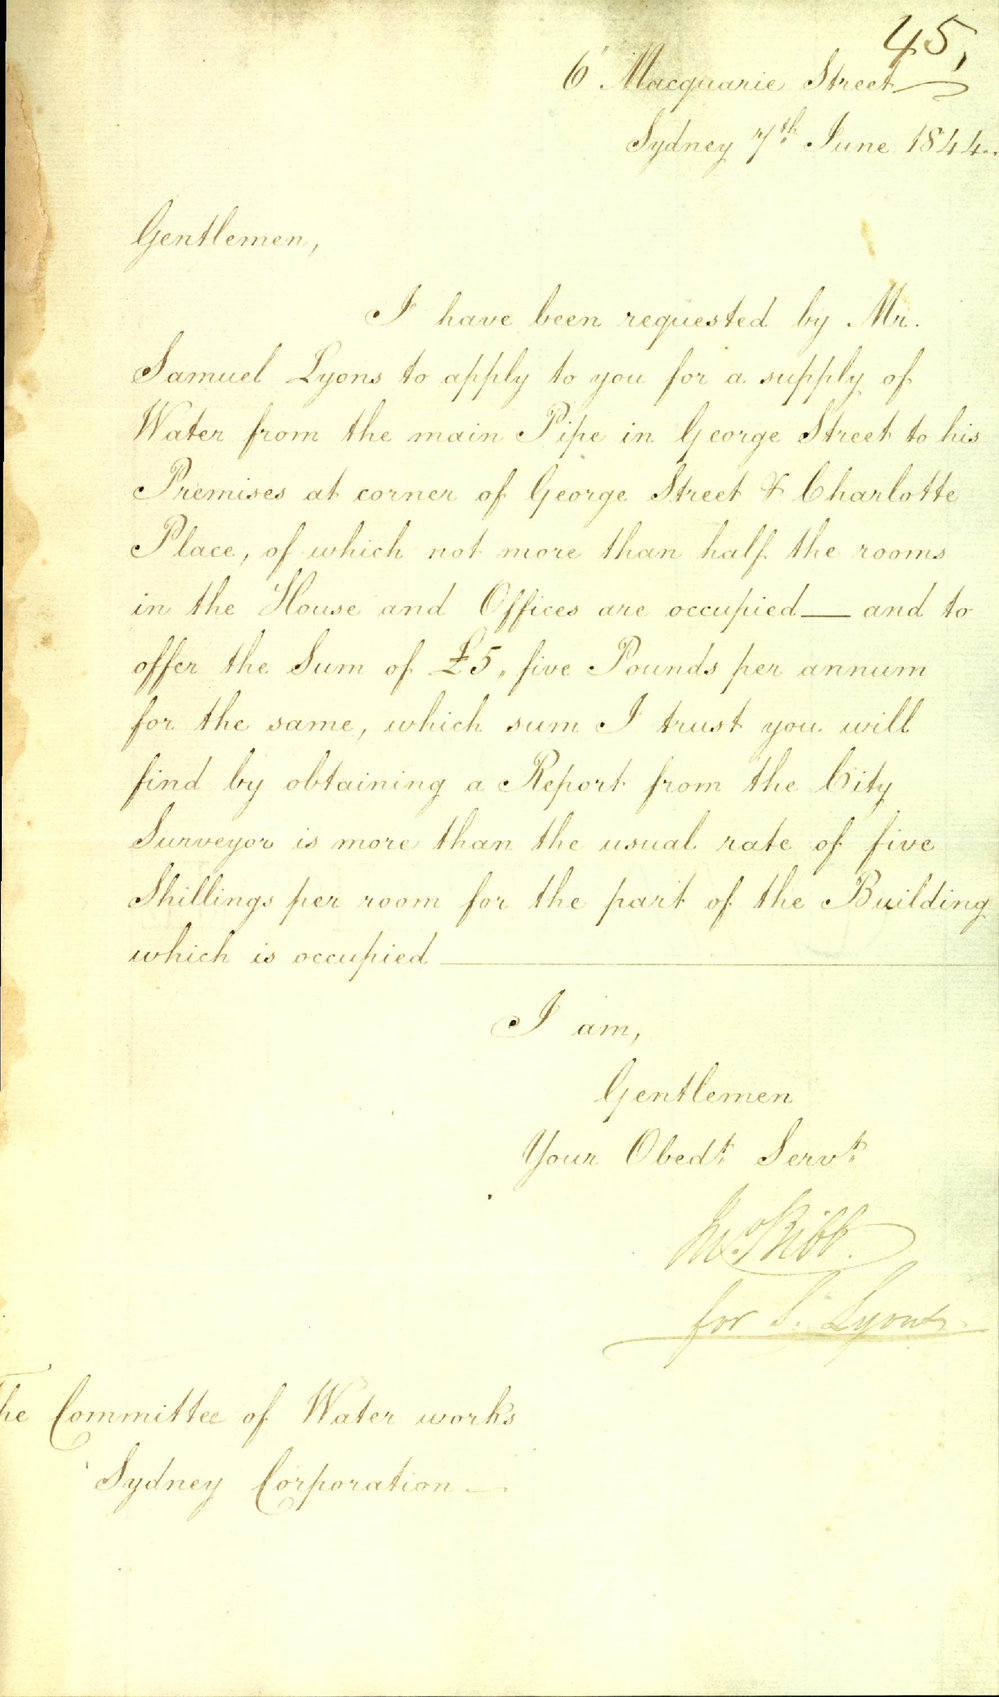 45,
6 Macquarie Street
Sydney 7th June 1844.
Gentlemen,
I have been requested by Mr.
Samuel Lyons to apply to you for a supply of
Water from the main Pipe in George Street to his
Premises at corner of George Street & Charlotte
Place, of which not more than half the rooms
in the House and Offices are occupied — and to
offer the Sum of £5,, five Pounds per annum
for the same, which sum I trust you will
find by obtaining a Report from the City
Surveyor is more than the usual rate of five
Shillings per room for the part of the Building
which is occupied —
I am,
Gentlemen
Your Obedt. Servt.
Jno. Bibb.
for S. Lyons.
The Committee of Water works
Sydney Corporation —